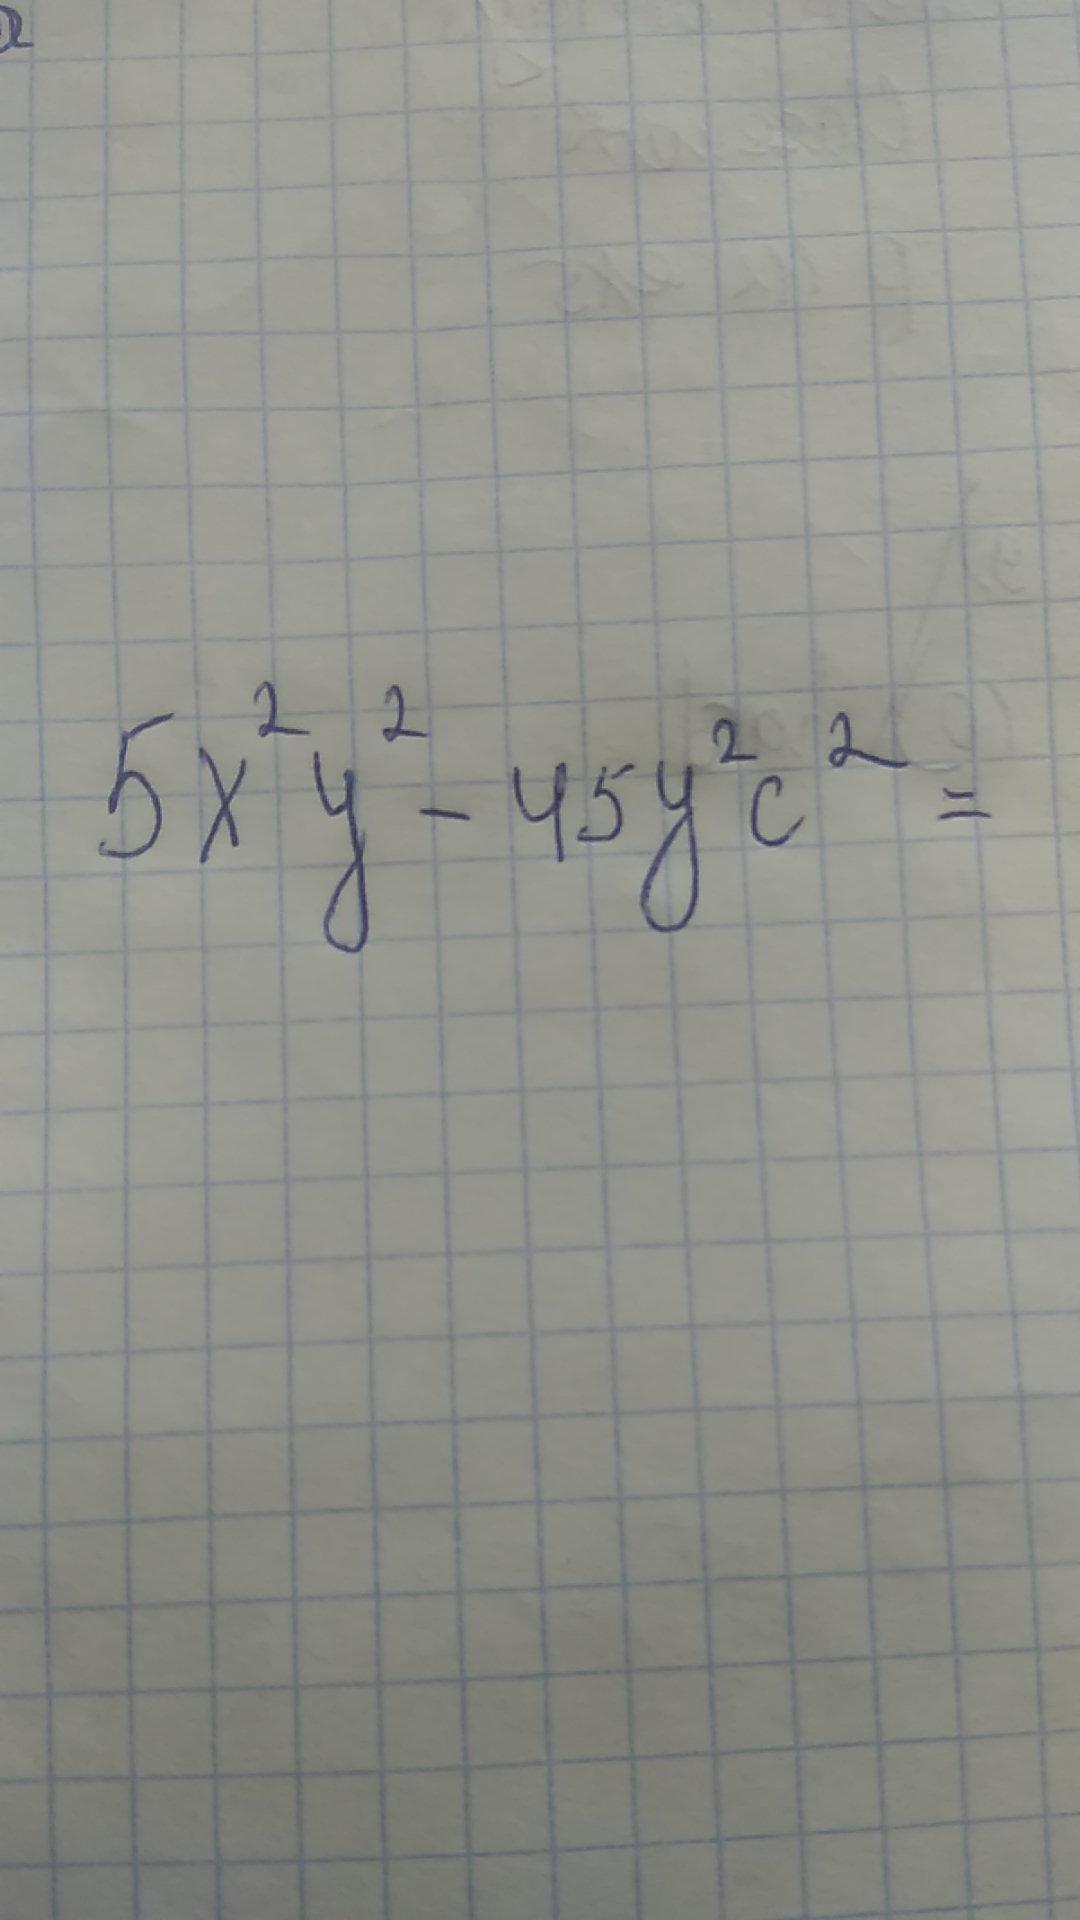 5x²y² - 45y²c² =